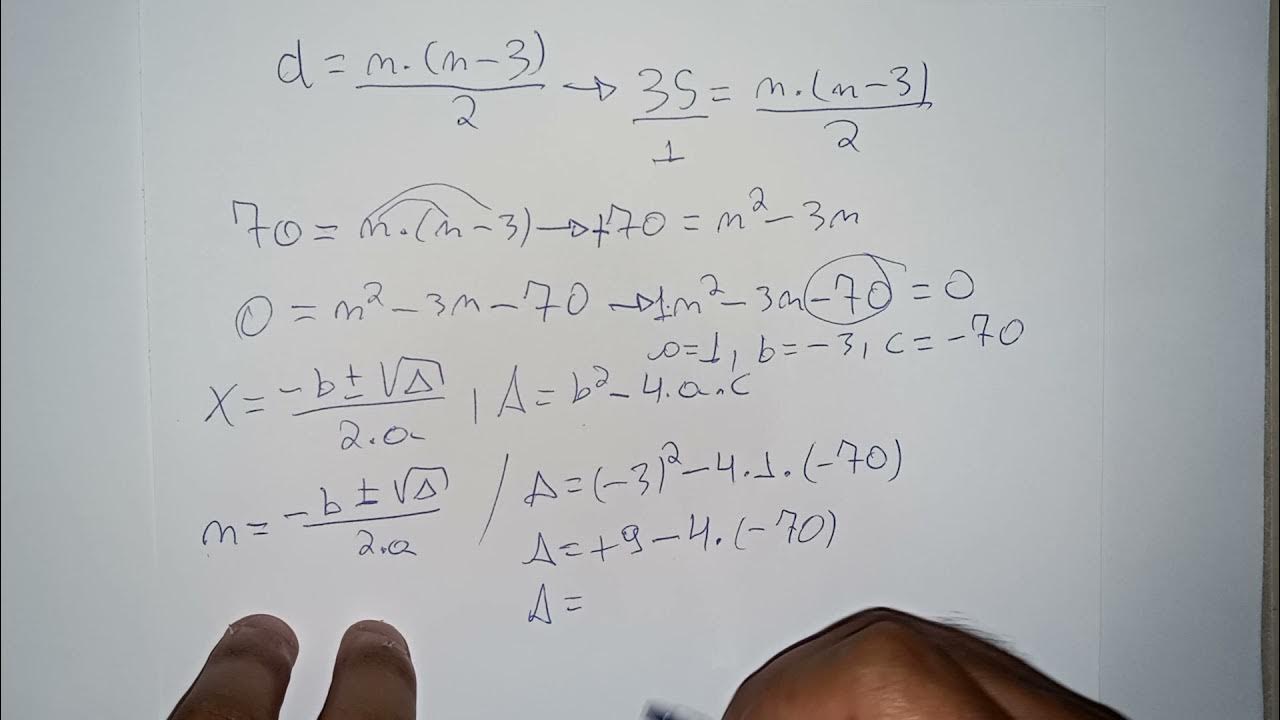 d = n.(n-3)/2 → 35/1 = n.(n-3)/2
70 = n.(n-3) → +70 = n² - 3n
0 = n² - 3n - 70 → 1n² - 3n - 70 = 0
a=1, b=-3, c=-70
X = -b ± √Δ / 2.a , Δ = b² - 4.a.c
n = -b ± √Δ / 2.a / Δ = (-3)² - 4.1.(-70)
Δ = +9 - 4.(-70)
Δ =